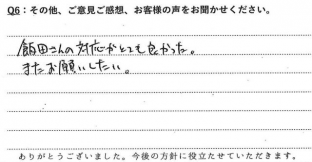 Q6：その他、ご意見ご感想、お客様の声をお聞かせください。
飯田さんの対応がとても良かった。
またお願いしたい。
ありがとうございました。今後の方針に役立たせていただきます。